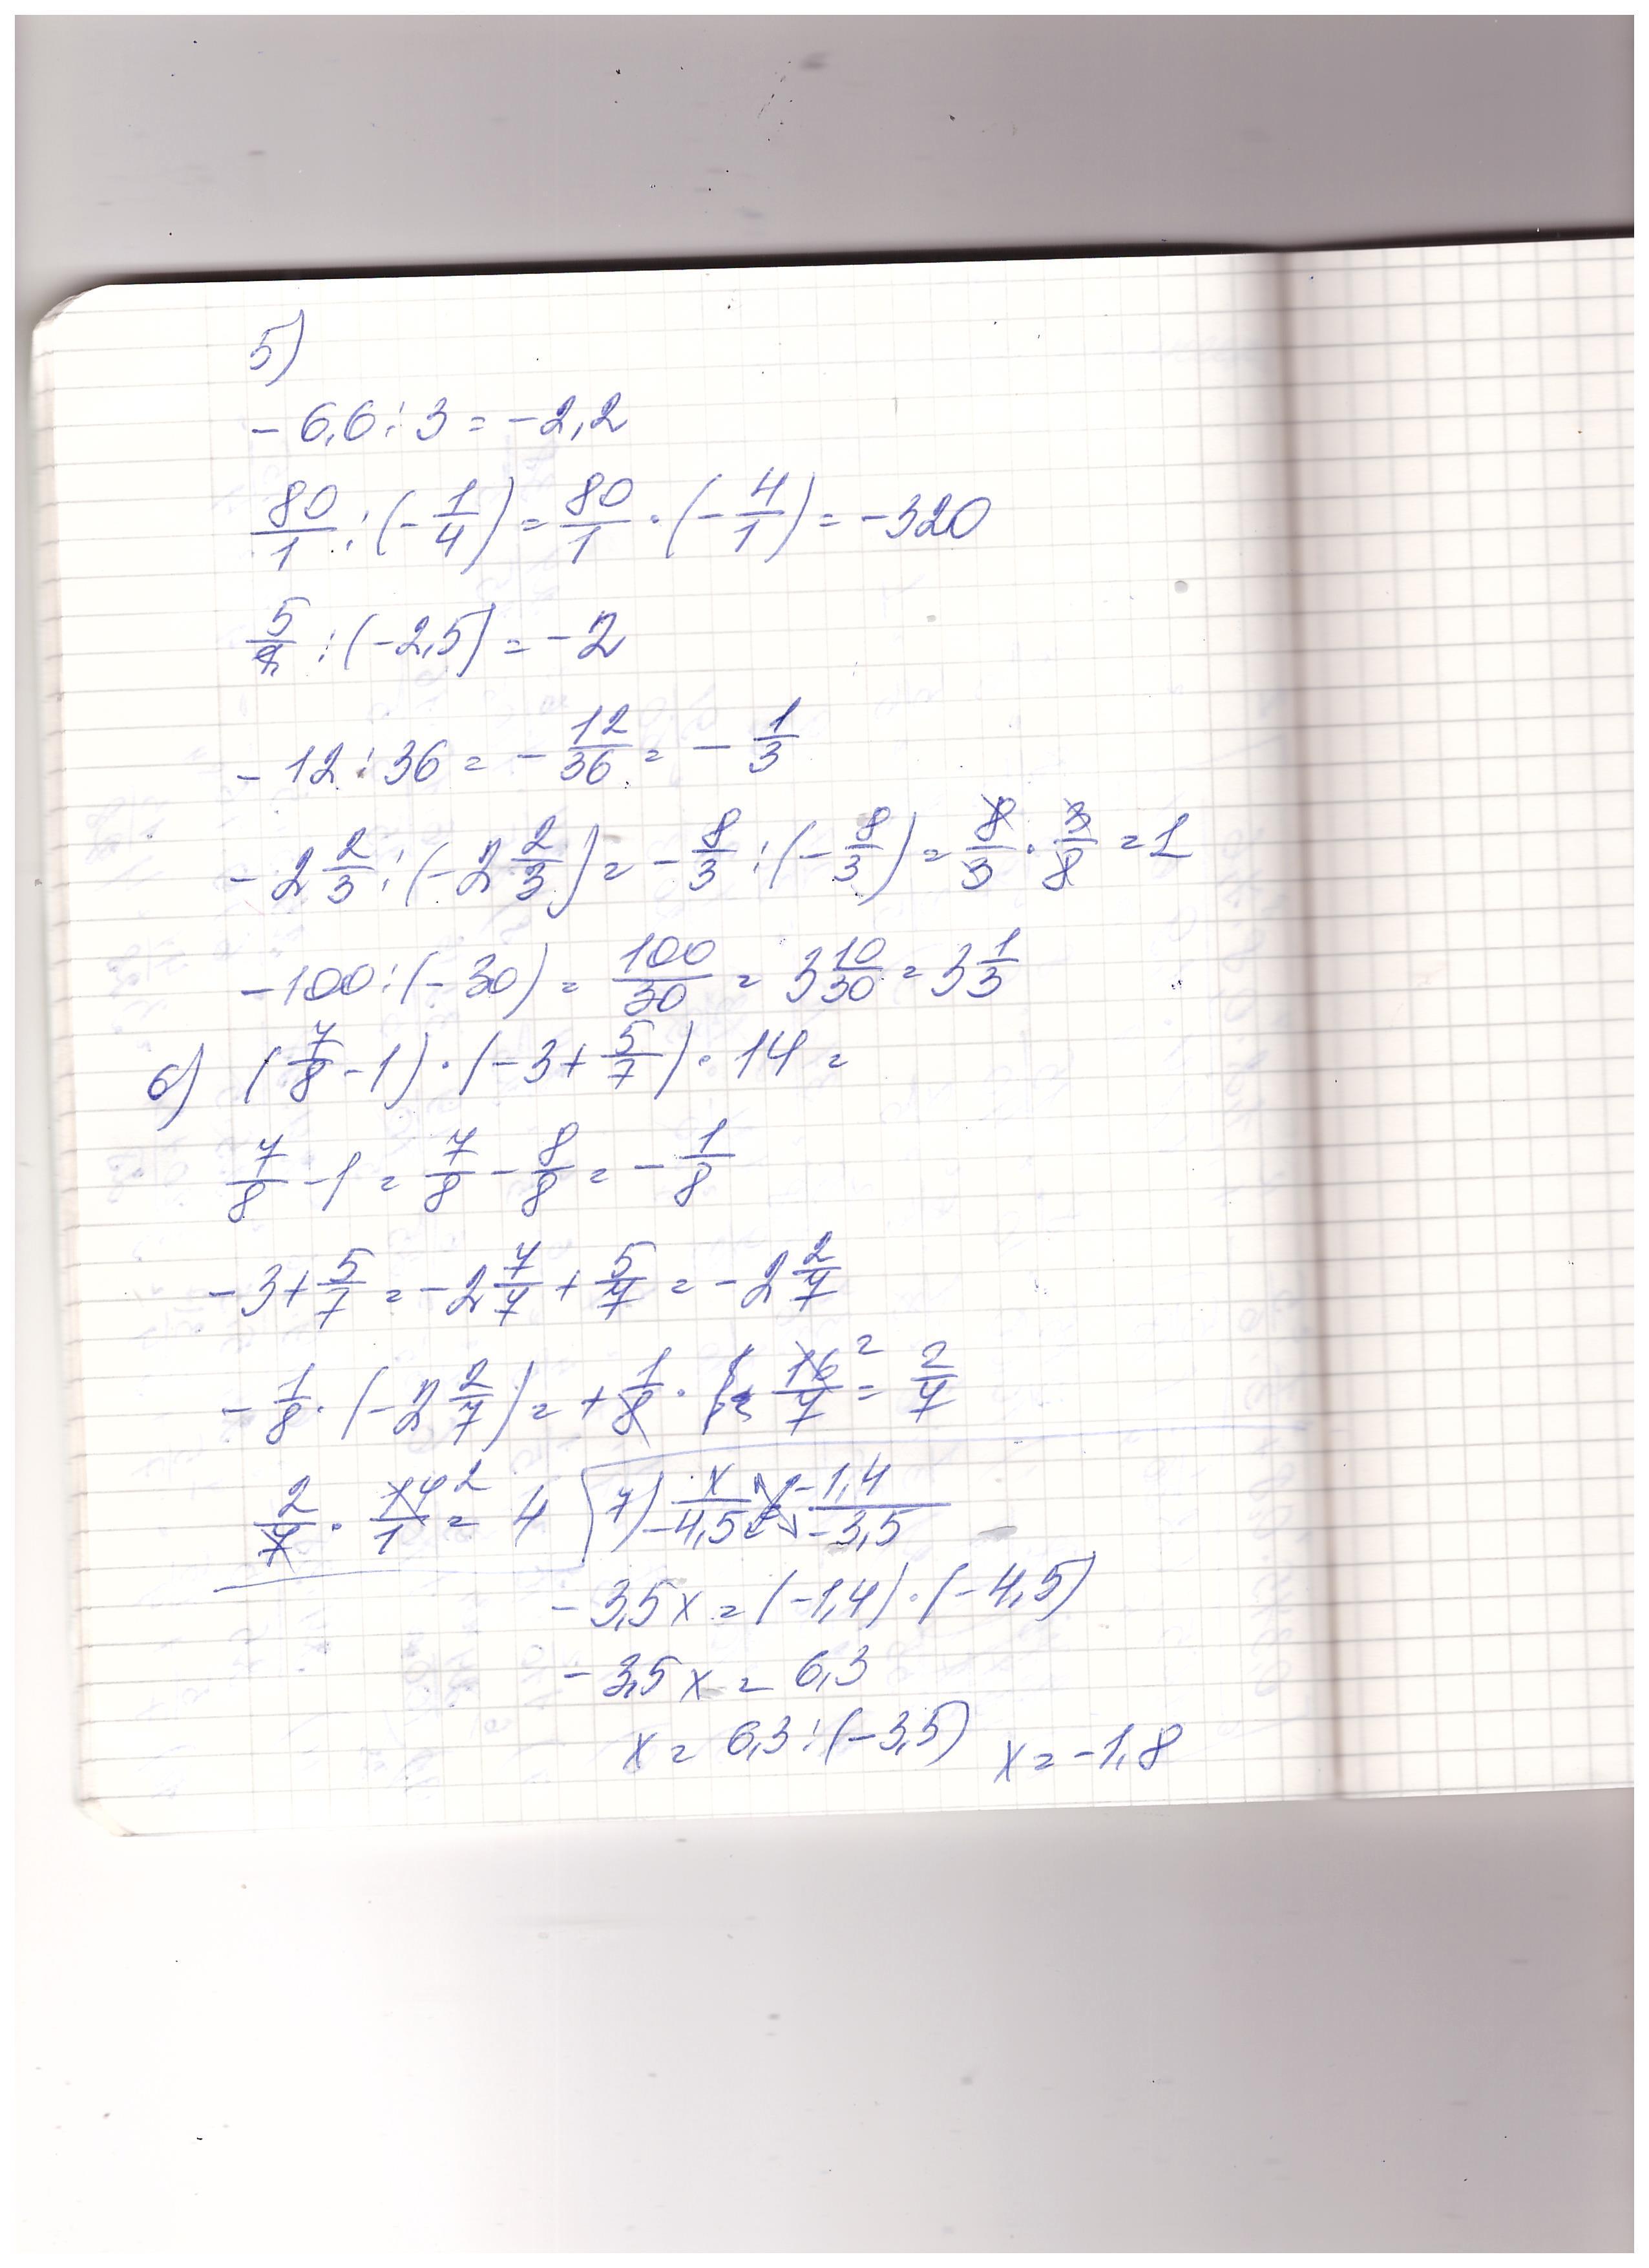 5)
- 6,6 : 3 = - 2,2
80/1 : (- 1/4) = 80/1 · (- 4/1) = - 320
: (-2,5) = - 2
- 12 : 36 = - 12/36 = - 1/3
- 2 2/3 : (- 2 2/3) = - 8/3 : (- 8/3) = 8/3 · 3/8 = 1
- 100 : (- 30) = 100/30 = 3 10/30 = 3 1/3
6) (7/8 - 1) · (- 3 + 5/7) · 14 =
7/8 - 1 = 7/8 - 8/8 = - 1/8
- 3 + 5/7 = - 2 7/7 + 5/7 = - 2 2/7
- 1/8 · (- 2 2/7) = + 1/8 · 16/7 ² = 2/7
2/7 · 14/1 ² = 4
7) x/-4,5 = -1,4/-3,5
- 3,5x = (-1,4) · (-4,5)
- 3,5x = 6,3
x = 6,3 : (-3,5) x = -1,8